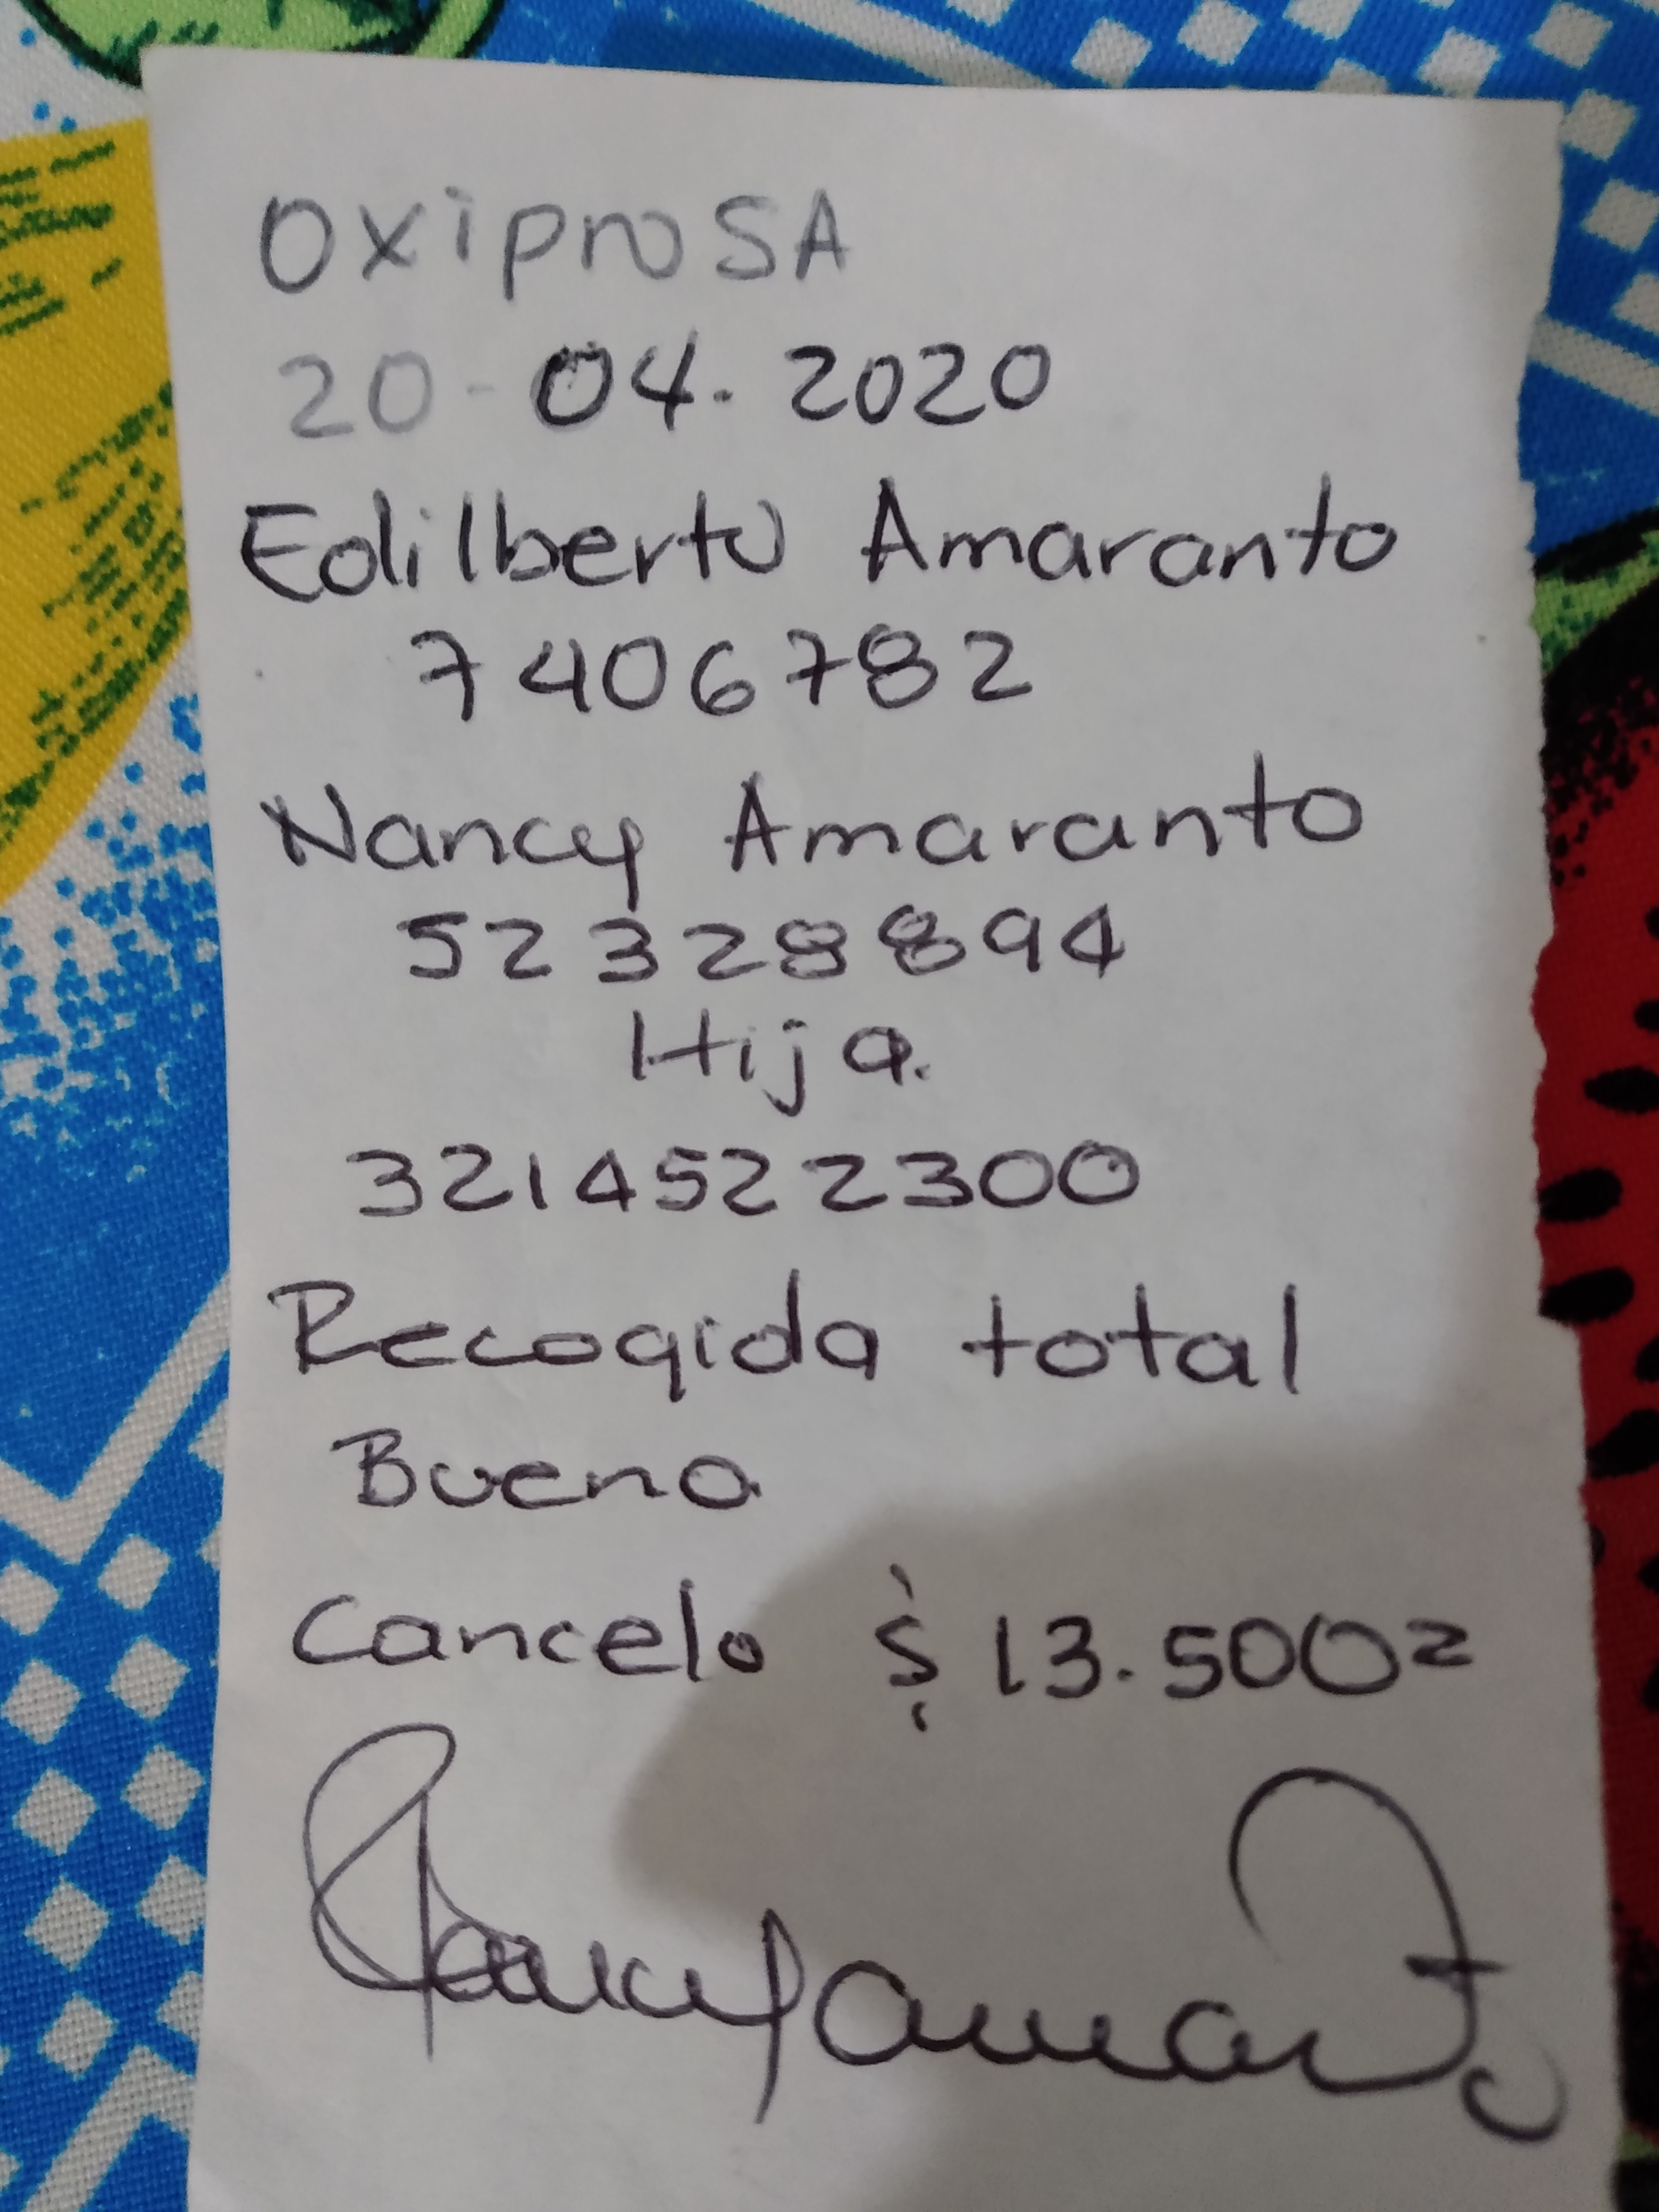 OxiproSA
20-04.2020
Edilberto Amaranto
7406782
Nancy Amaranto
52328894
Hija.
3214522300
Recogida total
Bueno
Cancelo $ 13.500=
Nancy Amaranto